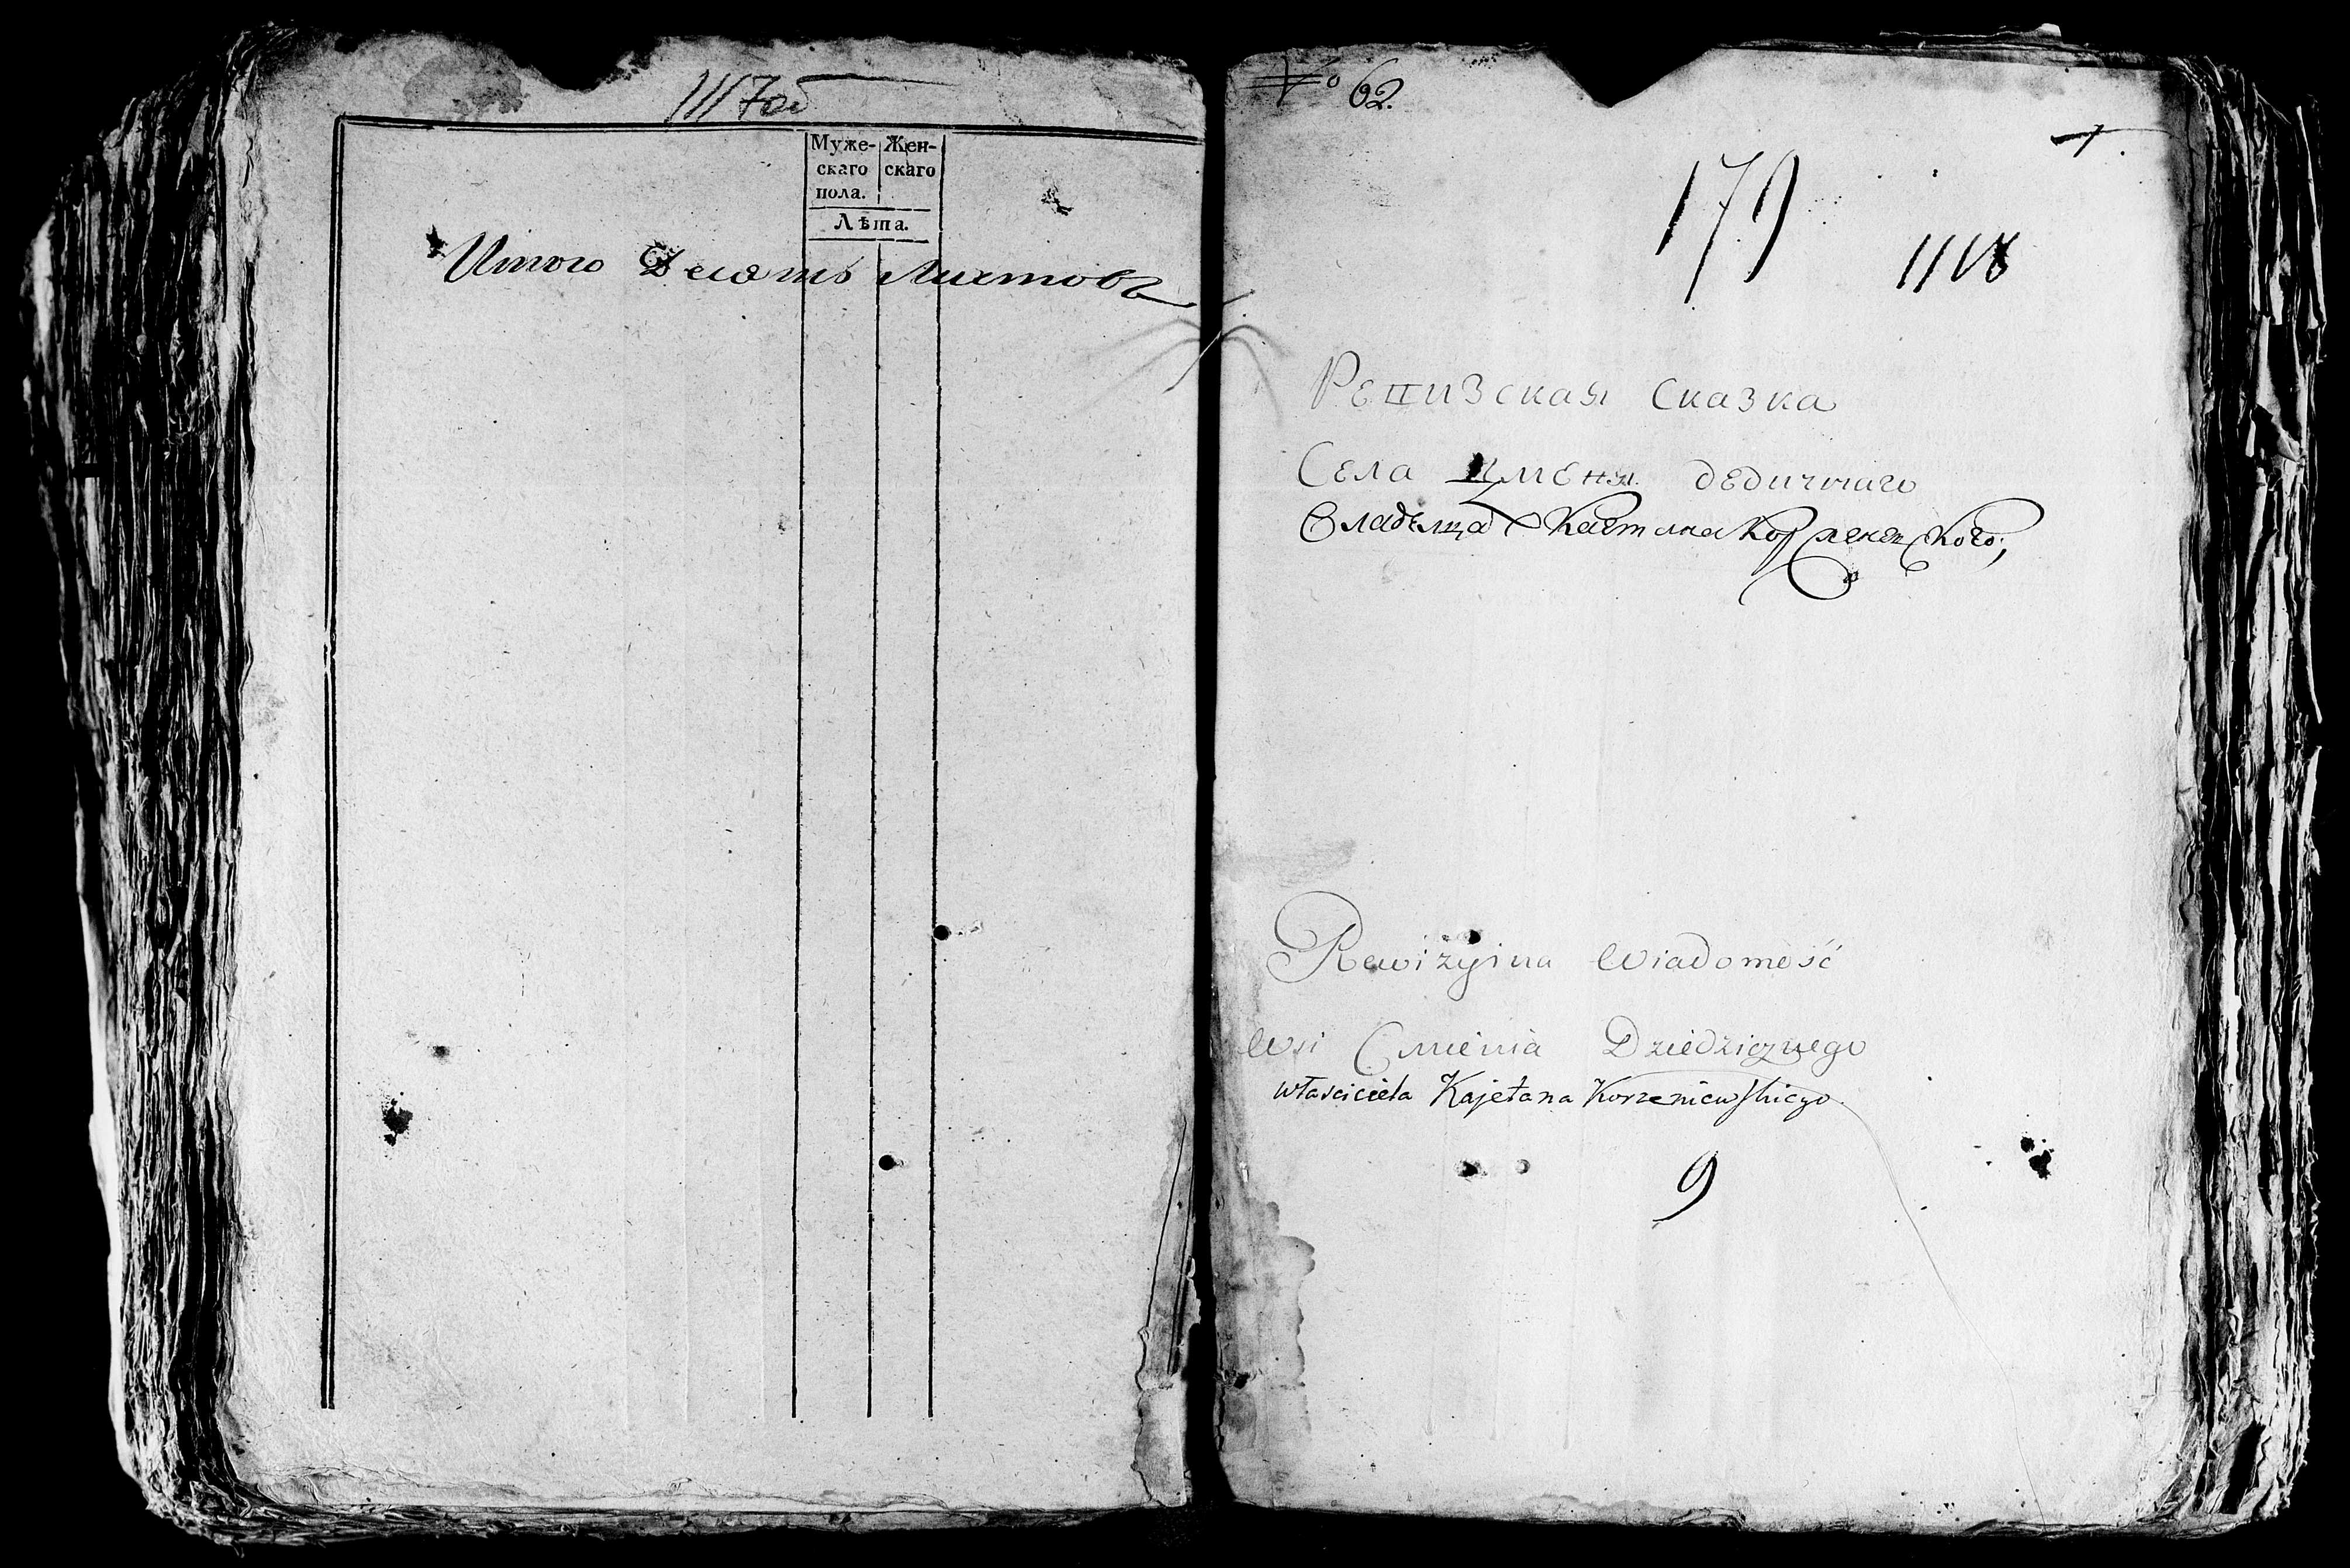 1117об
Муже- Жен-
скаго скаго
пола.
Лѣта.
Итого Десять Листовъ
No 62.
179
1118
Ревизская Сказка
Села Цменя дедичнаго
Владелца Каетана Корженевского;
Rewizyina Wiadomość
Wsi Cmienia Dziedzicznego
właściciela Kajetana Korzeniewskiego
9